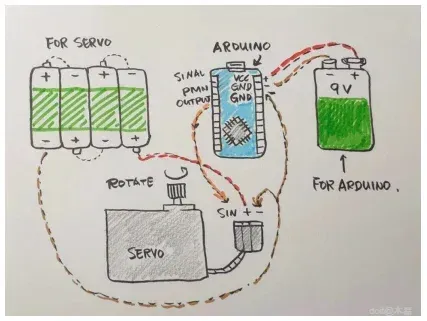 FOR SERVO
+ - + -
- + - +
ARDUINO
SINAL
PMN
OUTPUT
VCC
GND
GND
+
-
- +
9V
FOR ARDUINO.
ROTATE
SIN + -
SERVO